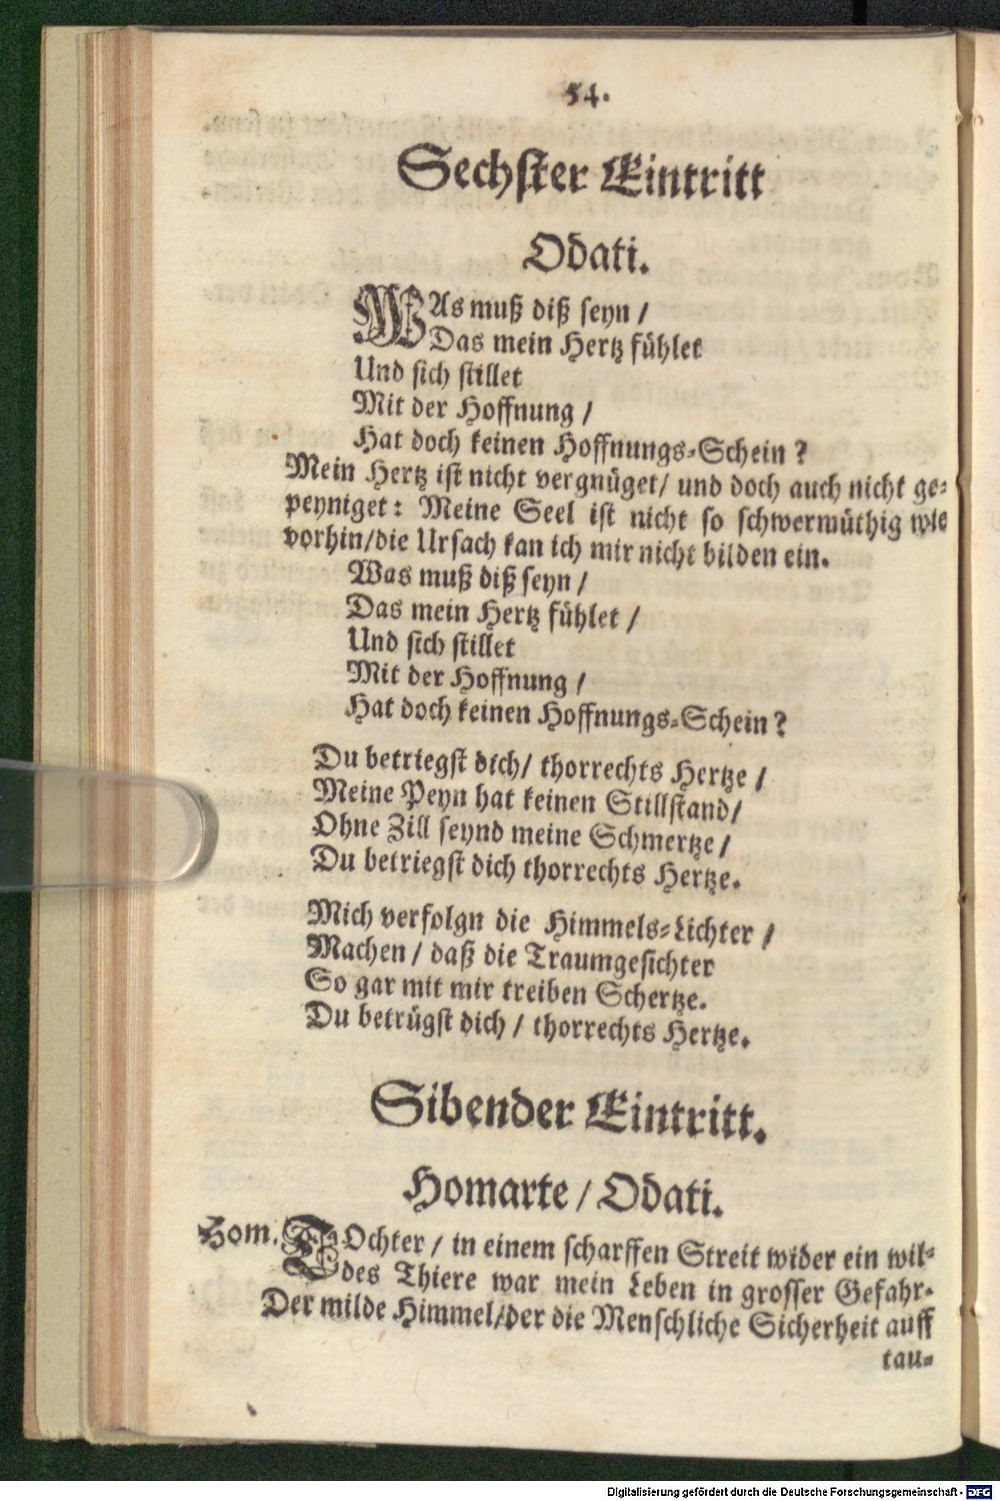 54.
Sechster Eintritt
Odati.
WAs muß diß seyn /
Das mein Hertz fühlet
Und sich stillet
Mit der Hoffnung /
Hat doch keinen Hoffnungs-Schein?
Mein Hertz ist nicht vergnüget/ und doch auch nicht ge-
peyniget: Meine Seel ist nicht so schwermüthig wie
vorhin/die Ursach kan ich mir nicht bilden ein.
Was muß diß seyn /
Das mein Hertz fühlet /
Und sich stillet
Mit der Hoffnung /
Hat doch keinen Hoffnungs-Schein?
Du betriegst dich/ thorrechts Hertze /
Meine Peyn hat keinen Stillstand/
Ohne Zill seynd meine Schmertze /
Du betriegst dich thorrechts Hertze.
Mich verfolgn die Himmels-Lichter /
Machen / daß die Traumgesichter
So gar mit mir treiben Schertze.
Du betrügst dich / thorrechts Hertze.
Sibender Eintritt.
Homarte / Odati.
Hom. TOchter / in einem scharffen Streit wider ein wil-
des Thiere war mein Leben in grosser Gefahr.
Der milde Himmel/der die Menschliche Sicherheit auff
tau-
Digitalisierung gefördert durch die Deutsche Forschungsgemeinschaft - DFG